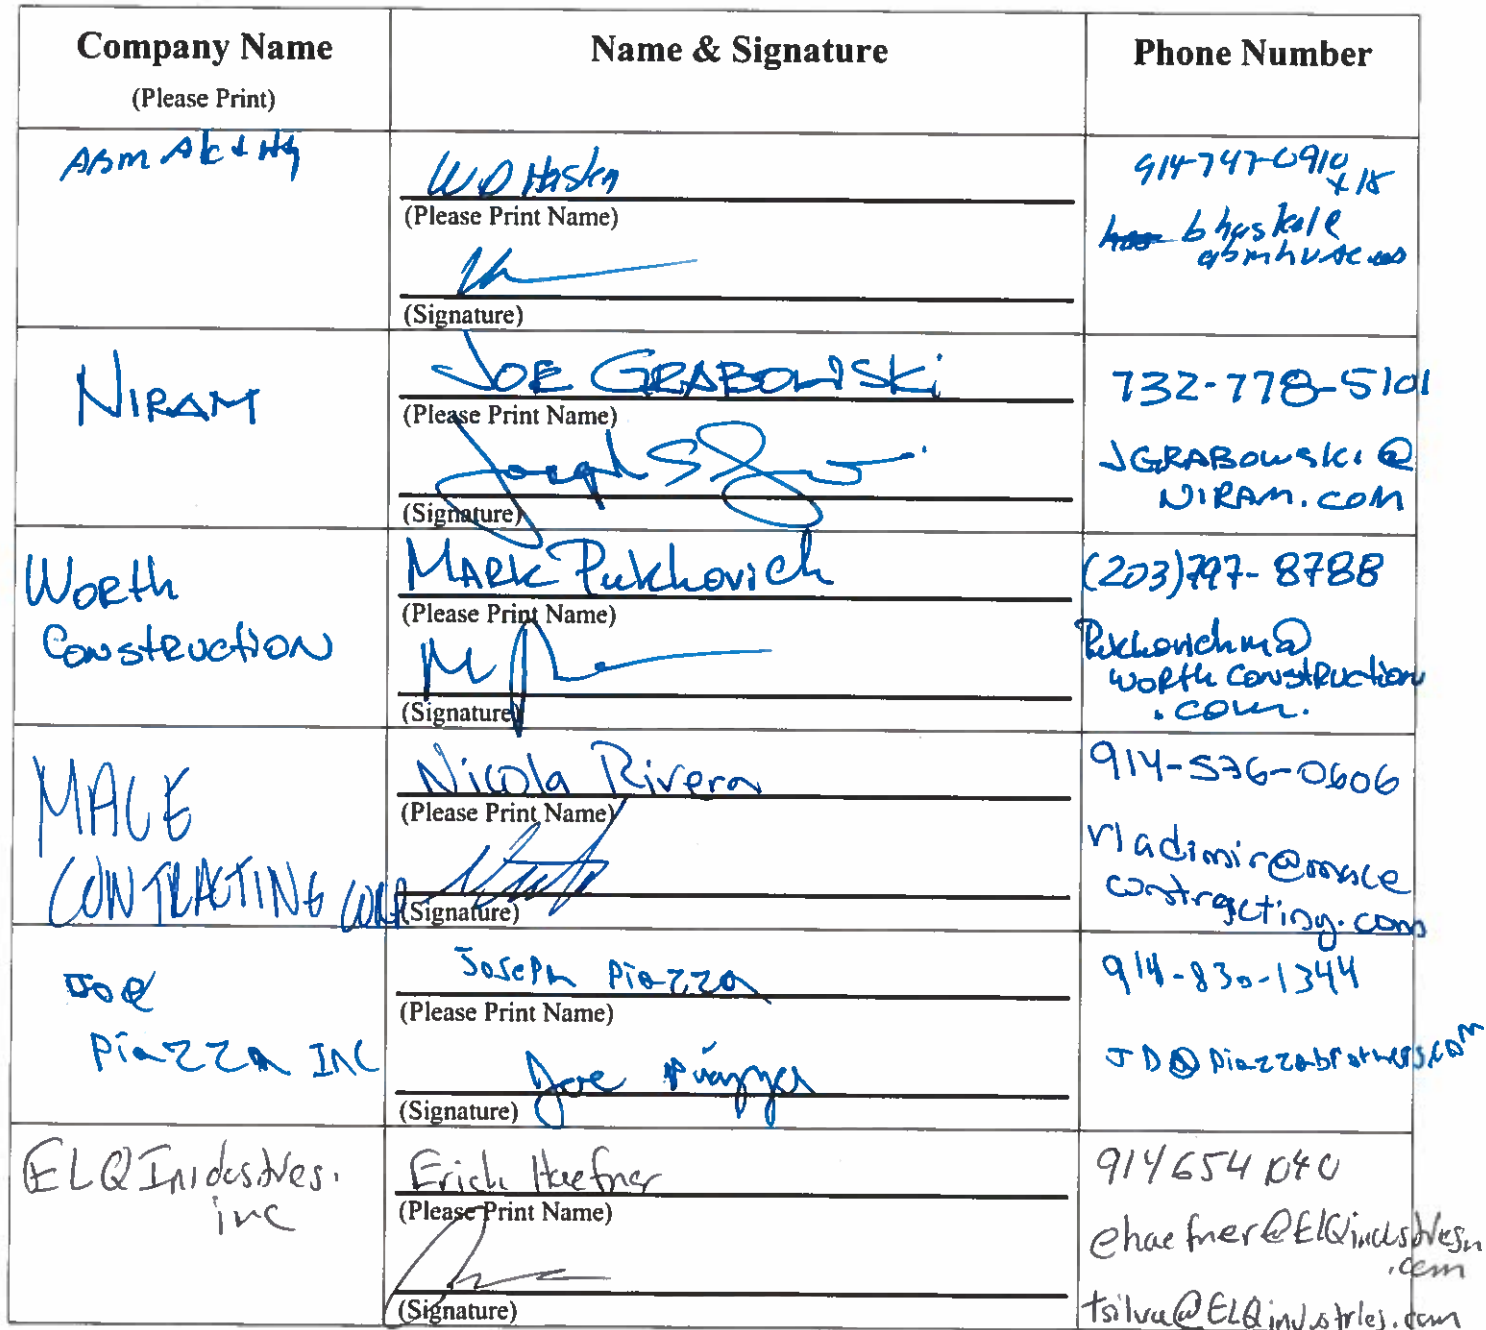 Company Name
(Please Print)
Name & Signature
Phone Number
ABM
WD
(Please Print Name)
(Signature)
914-747-0910
x 18
NIRAM
JOE GRABOWSKi
(Please Print Name)
Joseph S
(Signature)
732-778-5101
JGRABOWSKi@
NIRAM.COM
WORth
CONStRUCtiON
MARK Pukhovich
(Please Print Name)
M
(Signature)
(203)797-8788
Pukhovichm@
WORth CONStRUCtiON
.com.
MACE
CONTRACTING CORP
Nicola Rivera
(Please Print Name)
(Signature)
914-576-0606
vladimir@mace
contracting.com
JOe
PiaZZA INC
JOSePh PiaZZa
(Please Print Name)
Joe Piazza
(Signature)
914-830-1344
JD@Piazzabrothers.com
ELQ
inc
Erich Haefner
(Please Print Name)
(Signature)
914654
ehaefner@ELQindustries
.com
tsilva@ELQindustries.com